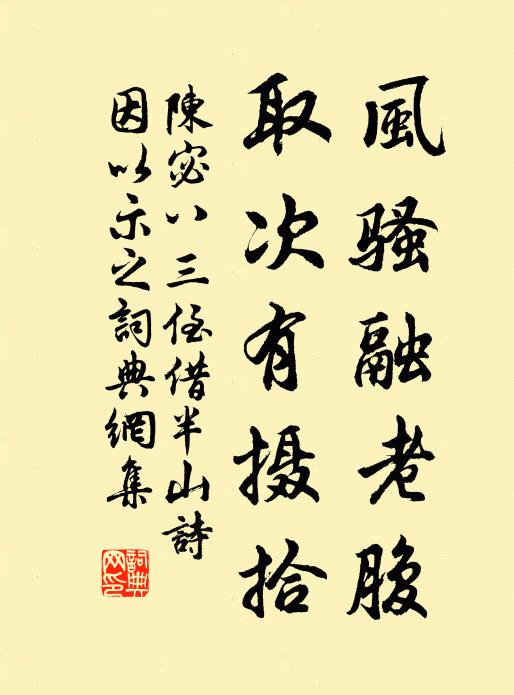 風骚融老腹
取次有摄拾
陳宓八三侄借半山詩
因以示之詞典網集
詞典
网印